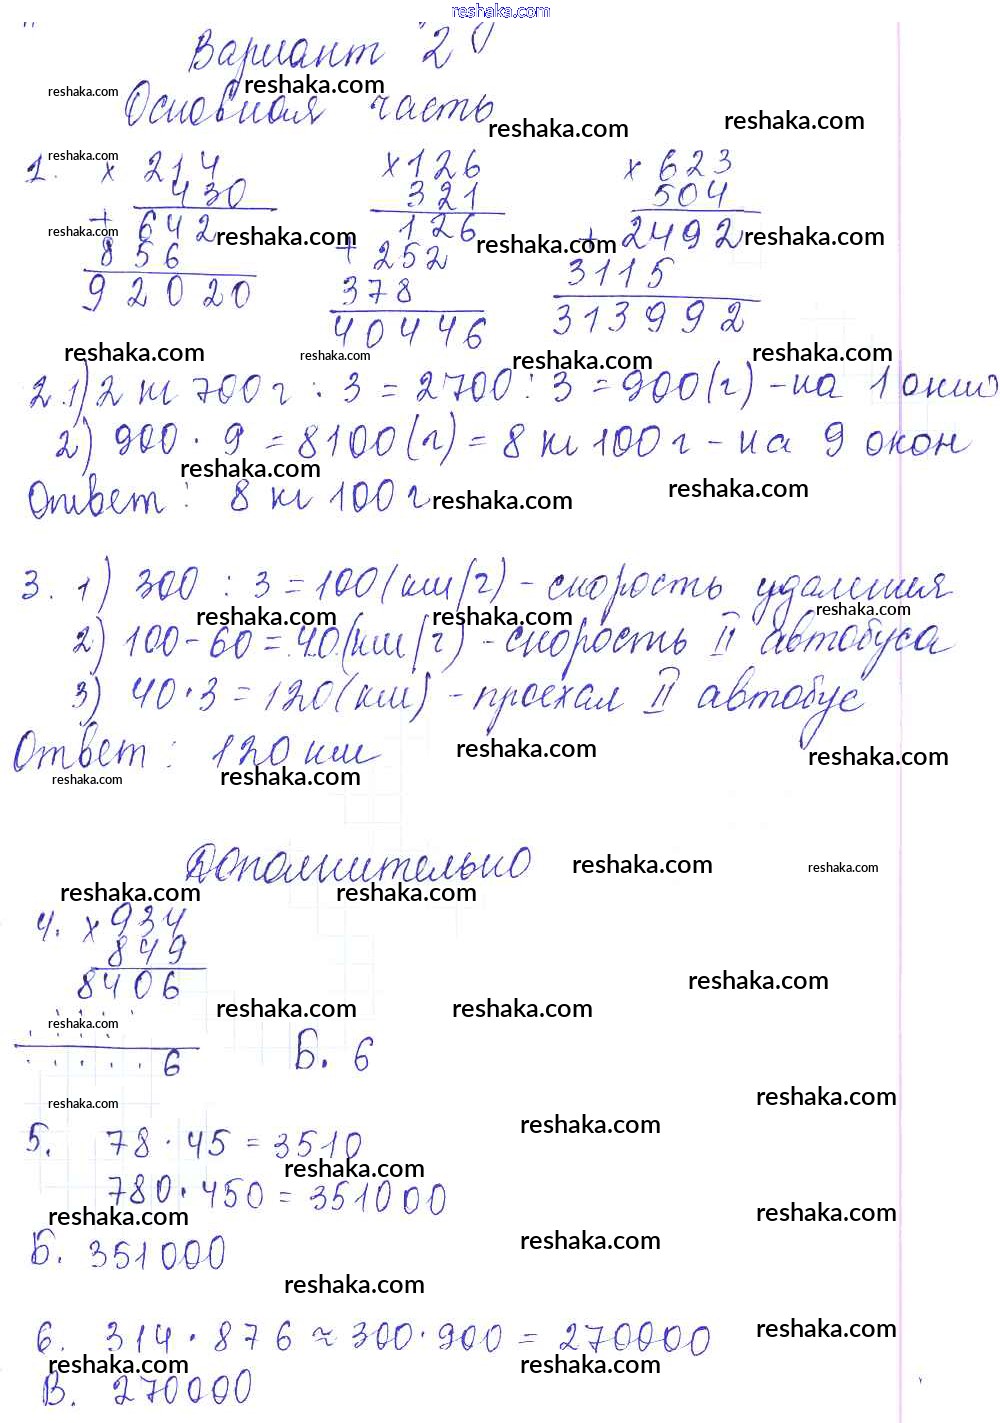 reshaka.com
Вариант 2
reshaka.com reshaka.com
Основная часть
reshaka.com reshaka.com
1. reshaka.com × 214 × 126 × 623
430 321 504
+ 642 126 + 2492
reshaka.com reshaka.com reshaka.com reshaka.com
856 + 252 3115
92020 378 313992
40446
reshaka.com reshaka.com reshaka.com reshaka.com
2.1) 2 кг 700 г : 3 = 2700 : 3 = 900 (г) - на 1 окно
2) 900 · 9 = 8100 (г) = 8 кг 100 г - на 9 окон
reshaka.com
Ответ: 8 кг 100 г
reshaka.com reshaka.com
3. 1) 300 : 3 = 100 (км/ч) - скорость удаления
reshaka.com reshaka.com reshaka.com
2) 100 - 60 = 40 (км/ч) - скорость II автобуса
3) 40 · 3 = 120 (км) - проехал II автобус
Ответ: 120 км
reshaka.com reshaka.com
reshaka.com reshaka.com
Дополнительно
reshaka.com reshaka.com
reshaka.com reshaka.com
4. × 934
849
8406
reshaka.com
reshaka.com reshaka.com
reshaka.com
. . . . . 6 Б. 6
reshaka.com reshaka.com
reshaka.com
5. 78 · 45 = 3510
reshaka.com
780 · 450 = 351000
reshaka.com reshaka.com
Б. 351000
reshaka.com
reshaka.com
6. 314 · 876 ≈ 300 · 900 = 270000
reshaka.com
reshaka.com reshaka.com
В. 270000